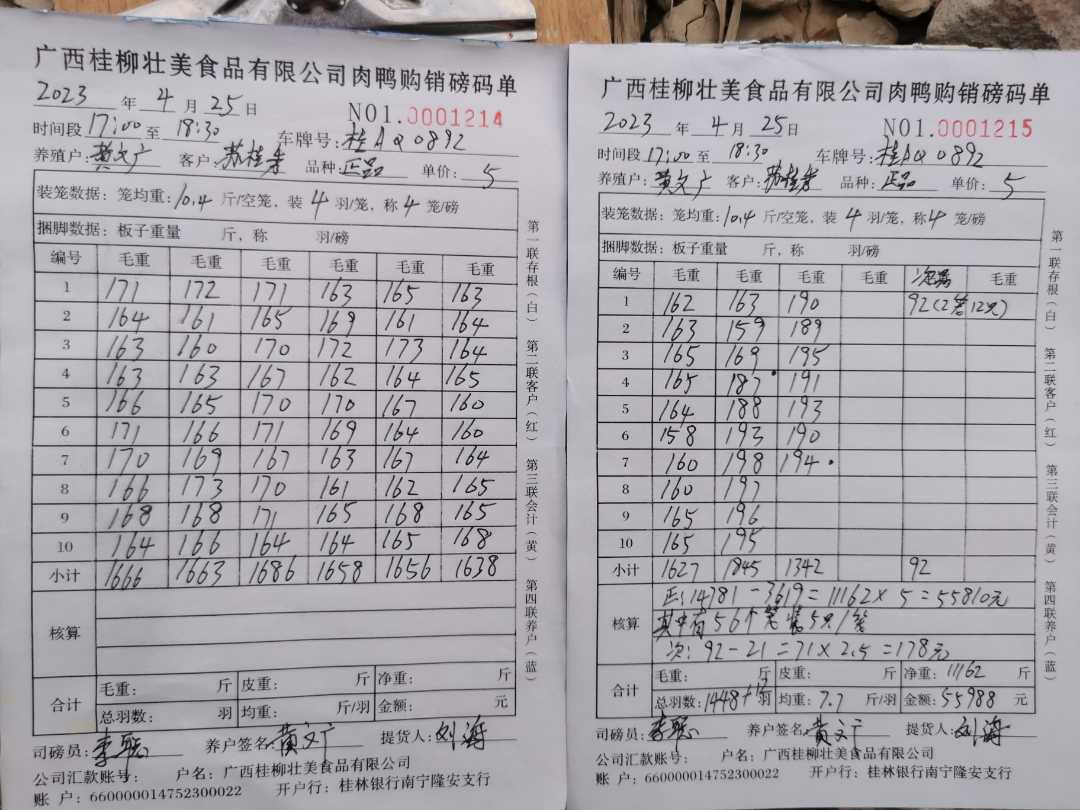 广西桂柳壮美食品有限公司肉鸭购销磅码单
2023 年 4 月 25 日 NO1.0001214
时间段 17:00 至 18:30 车牌号: 桂AQ0892
养殖户: 黄文广 客户: 苏桂 品种: 正品 单价: 5
装笼数据: 笼均重: 10.4 斤/空笼, 装 4 羽/笼, 称 4 笼/磅
捆脚数据: 板子重量 斤, 称 羽/磅
编号 毛重 毛重 毛重 毛重 毛重
1 171 172 171 163 165 163
2 164 161 165 169 161 164
3 163 160 170 172 173 164
4 163 163 167 162 164 165
5 166 165 170 170 167 160
6 171 166 171 169 164 160
7 170 169 167 163 167 164
8 166 173 170 161 162 165
9 168 168 171 165 168 165
10 164 166 164 164 165 168
小计 1666 1663 1686 1658 1656 1638
核算
合计
毛重: 斤 皮重: 斤 净重: 斤
总羽数: 羽 均重: 斤/羽 金额: 元
司磅员: 李聪 养户签名: 黄文广 提货人: 刘涛
公司汇款账号: 户名: 广西桂柳壮美食品有限公司
账 户: 660000014752300022 开户行: 桂林银行南宁隆安支行
第一联存根(白) 第二联客户(红) 第三联会计(黄) 第四联养户(蓝)
广西桂柳壮美食品有限公司肉鸭购销磅码单
2023 年 4 月 25 日 NO1.0001215
时间段 17:00 至 18:30 车牌号: 桂AQ0892
养殖户: 黄文广 客户: 苏桂 品种: 正品 单价: 5
装笼数据: 笼均重: 10.4 斤/空笼, 装 4 羽/笼, 称 4 笼/磅
捆脚数据: 板子重量 斤, 称 羽/磅
编号 毛重 毛重 毛重 毛重 次品 毛重
1 162 163 190 92(2笼12只)
2 163 159 189
3 165 169 195
4 165 187 191
5 164 188 193
6 158 193 190
7 160 198 194
8 160 197
9 165 196
10 165 195
小计 1627 1845 1342 92
核算
正: 14781-3619=11162×5=55810元
其中有56个笼装5只/笼
次: 92-21=71×2.5=178元
合计
毛重: 斤 皮重: 斤 净重: 11162 斤
总羽数: 1448+12 羽 均重: 7.7 斤/羽 金额: 55988 元
司磅员: 李聪 养户签名: 黄文广 提货人: 刘涛
公司汇款账号: 户名: 广西桂柳壮美食品有限公司
账 户: 660000014752300022 开户行: 桂林银行南宁隆安支行
第一联存根(白) 第二联客户(红) 第三联会计(黄) 第四联养户(蓝)